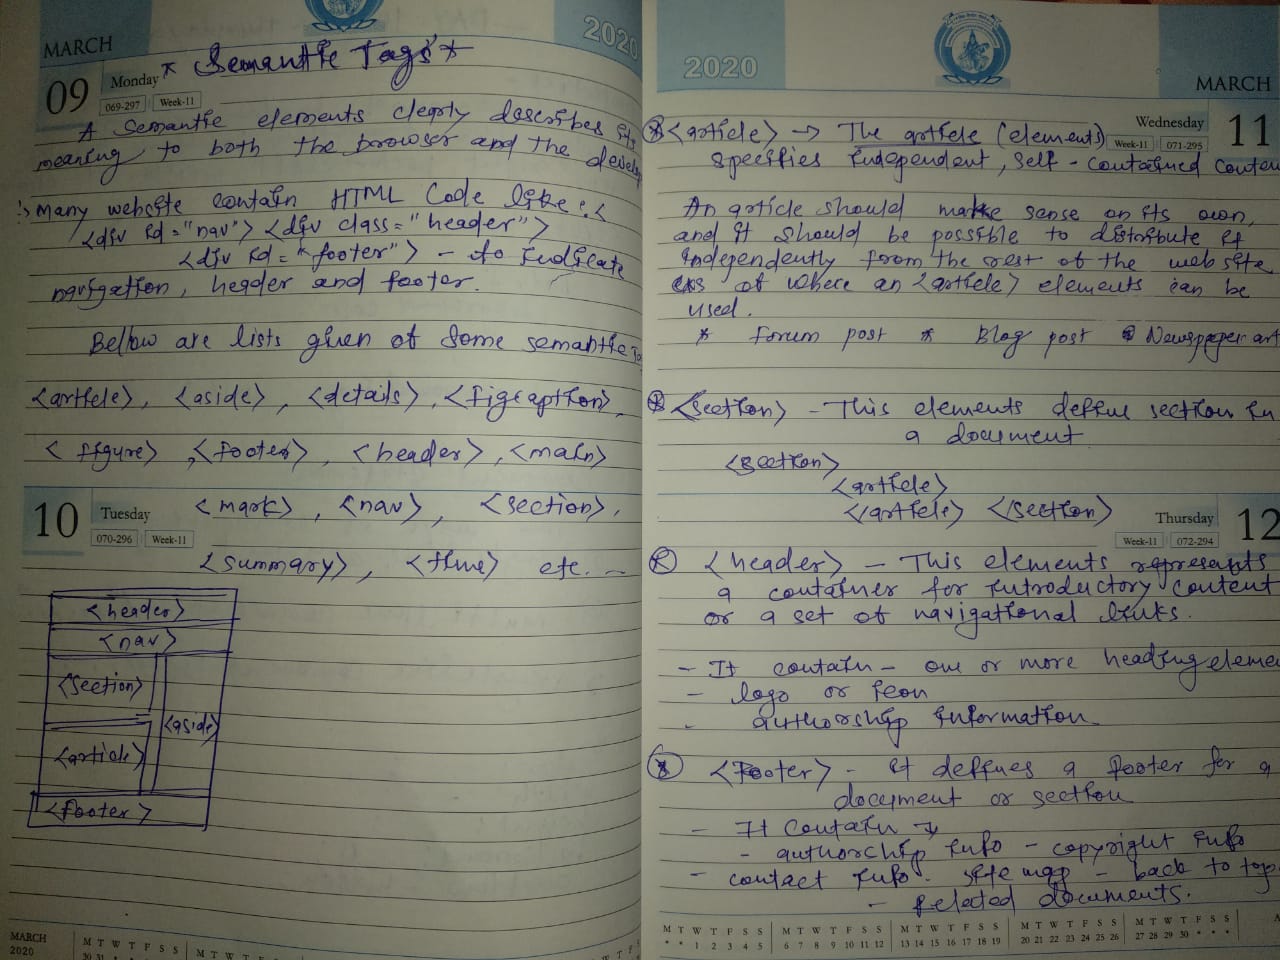 MARCH
2020
09
Monday
069-297
Week-11
* Semantic Tags *
A semantic elements clearly describes its
meaning to both the browser and the develop
:> Many website contain HTML Code like : <
<div id="nav"> <div class="header">
<div id="footer"> - to indicate
navigation, header and footer.
Bellow are lists given of some semantic
<article>, <aside>, <details>, <figcaption>,
<figure>, <footer>, <header>, <main>
10
Tuesday
070-296
Week-11
<mark>, <nav>, <section>,
<summary>, <time> etc. --
<header>
<nav>
<section>
<aside>
<article>
<footer>
MARCH
2020
M T W T F S S
30 31
M T W T F S S
2020
MARCH
Wednesday
11
Week-11
071-295
<article> → The article (elements)
specifies independent, self-contained conten
An article should make sense on its own,
and it should be possible to distribute it
independently from the rest of the website
exs of where an <article> elements can be
used.
* forum post * Blog post Newspaper art
<section> - This elements define section in
a document
<section>
<article>
</article> </section>
Thursday
12
Week-11
072-294
<header> - This elements represents
a container for introductory content
or a set of navigational links.
- It contain - one or more heading eleme
- logo or icon
- authorship information
<footer> - It defines a footer for a
document or section
- It contain
- authorship info - copyright info
- contact info. site map - back to top
- related documents.
M T W T F S S
* * 1 2 3 4 5
M T W T F S S
6 7 8 9 10 11 12
M T W T F S S
13 14 15 16 17 18 19
M T W T F S S
20 21 22 23 24 25 26
M T W T F S S
27 28 29 30 * * *